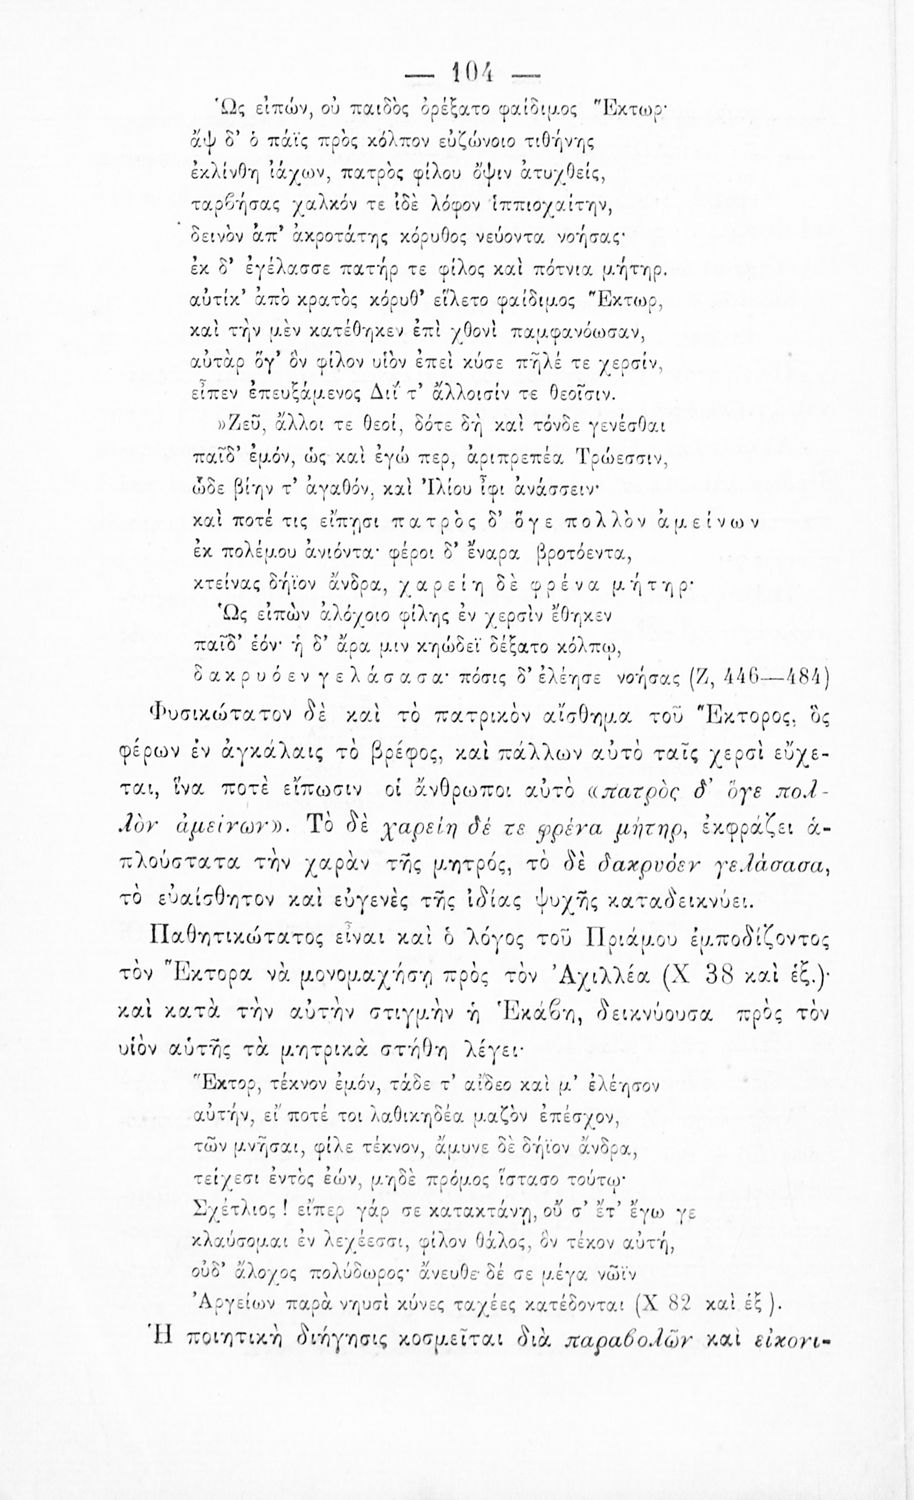 — 104 —
Ὣς εἰπών, οὐ παιδὸς ὀρέξατο φαίδιμος Ἕκτωρ·
ἂψ δ’ ὁ πάϊς πρὸς κόλπον εὐζώνοιο τιθήνης
ἐκλίνθη ἰάχων, πατρὸς φίλου ὄψιν ἀτυχθείς,
ταρβήσας χαλκόν τε ἰδὲ λόφον ἱππιοχαίτην,
δεινὸν ἀπ’ ἀκροτάτης κόρυθος νεύοντα νοήσας·
ἐκ δ’ ἐγέλασσε πατήρ τε φίλος καὶ πότνια μήτηρ.
αὐτίκ’ ἀπὸ κρατὸς κόρυθ’ εἵλετο φαίδιμος Ἕκτωρ,
καὶ τὴν μὲν κατέθηκεν ἐπὶ χθονὶ παμφανόωσαν,
αὐτὰρ ὅγ’ ὃν φίλον υἱὸν ἐπεὶ κύσε πῆλέ τε χερσίν,
εἶπεν ἐπευξάμενος Διΐ τ’ ἄλλοισίν τε θεοῖσιν.
»Ζεῦ, ἄλλοι τε θεοί, δότε δὴ καὶ τόνδε γενέσθαι
παῖδ’ ἐμόν, ὡς καὶ ἐγώ περ, ἀριπρεπέα Τρώεσσιν,
ὧδε βίην τ’ ἀγαθόν, καὶ Ἰλίου ἶφι ἀνάσσειν·
καὶ ποτέ τις εἴπῃσι πατρὸς δ’ ὅγε πολλὸν ἀμείνων
ἐκ πολέμου ἀνιόντα· φέροι δ’ ἔναρα βροτόεντα,
κτείνας δήϊον ἄνδρα, χαρείη δὲ φρένα μήτηρ·
Ὣς εἰπὼν ἀλόχοιο φίλης ἐν χερσὶν ἔθηκεν
παῖδ’ ἑόν· ἡ δ’ ἄρα μιν κηώδεϊ δέξατο κόλπῳ,
δακρυόεν γελάσασα· πόσις δ’ ἐλέησε νοήσας (Ζ, 446—484)
Φυσικώτατον δὲ καὶ τὸ πατρικὸν αἴσθημα τοῦ Ἕκτορος, ὃς
φέρων ἐν ἀγκάλαις τὸ βρέφος, καὶ πάλλων αὐτὸ ταῖς χερσὶ εὔχε-
ται, ἵνα ποτὲ εἴπωσιν οἱ ἄνθρωποι αὐτὸ «πατρὸς δ’ ὅγε πολ-
λὸν ἀμείνων». Τὸ δὲ χαρείη δέ τε φρένα μήτηρ, ἐκφράζει ἁ-
πλούστατα τὴν χαρὰν τῆς μητρός, τὸ δὲ δακρυόεν γελάσασα,
τὸ εὐαίσθητον καὶ εὐγενὲς τῆς ἰδίας ψυχῆς καταδεικνύει.
Παθητικώτατος εἶναι καὶ ὁ λόγος τοῦ Πριάμου ἐμποδίζοντος
τὸν Ἕκτορα νὰ μονομαχήσῃ πρὸς τὸν Ἀχιλλέα (Χ 38 καὶ ἑξ.)·
καὶ κατὰ τὴν αὐτὴν στιγμὴν ἡ Ἑκάβη, δεικνύουσα πρὸς τὸν
υἱὸν αὑτῆς τὰ μητρικὰ στήθη λέγει·
Ἕκτορ, τέκνον ἐμόν, τάδε τ’ αἴδεο καὶ μ’ ἐλέησον
αὐτήν, εἴ ποτέ τοι λαθικηδέα μαζὸν ἐπέσχον,
τῶν μνῆσαι, φίλε τέκνον, ἄμυνε δὲ δήϊον ἄνδρα,
τείχεσι ἐντὸς ἐών, μηδὲ πρόμος ἵστασο τούτῳ·
Σχέτλιος! εἴπερ γάρ σε κατακτάνῃ, οὔ σ’ ἔτ’ ἔγω γε
κλαύσομαι ἐν λεχέεσσι, φίλον θάλος, ὃν τέκον αὐτή,
οὐδ’ ἄλοχος πολύδωρος· ἄνευθε δέ σε μέγα νῶϊν
Ἀργείων παρὰ νηυσὶ κύνες ταχέες κατέδονται (Χ 82 καὶ ἑξ ).
Ἡ ποιητικὴ διήγησις κοσμεῖται διὰ παραβολῶν καὶ εἰκονι-